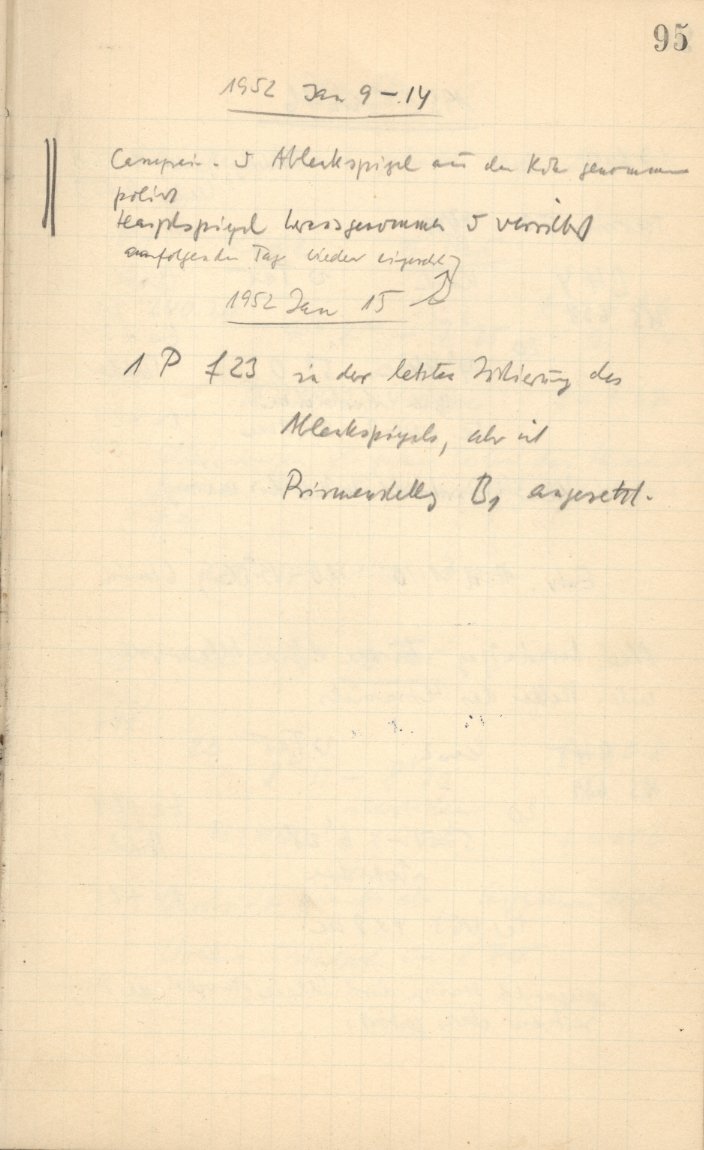 95
1952 Jan 9 – 14
Cassegrain- u Ablenkspiegel aus der genommen
poliert
Hauptspiegel herausgenommen u versilbert
am folgenden Tage wieder eingesetzt
1952 Jan 15
1 P f 23 in der letzten Justierung des
Ablenkspiegels, aber mit
Prismenstellg B₁ angesetzt.